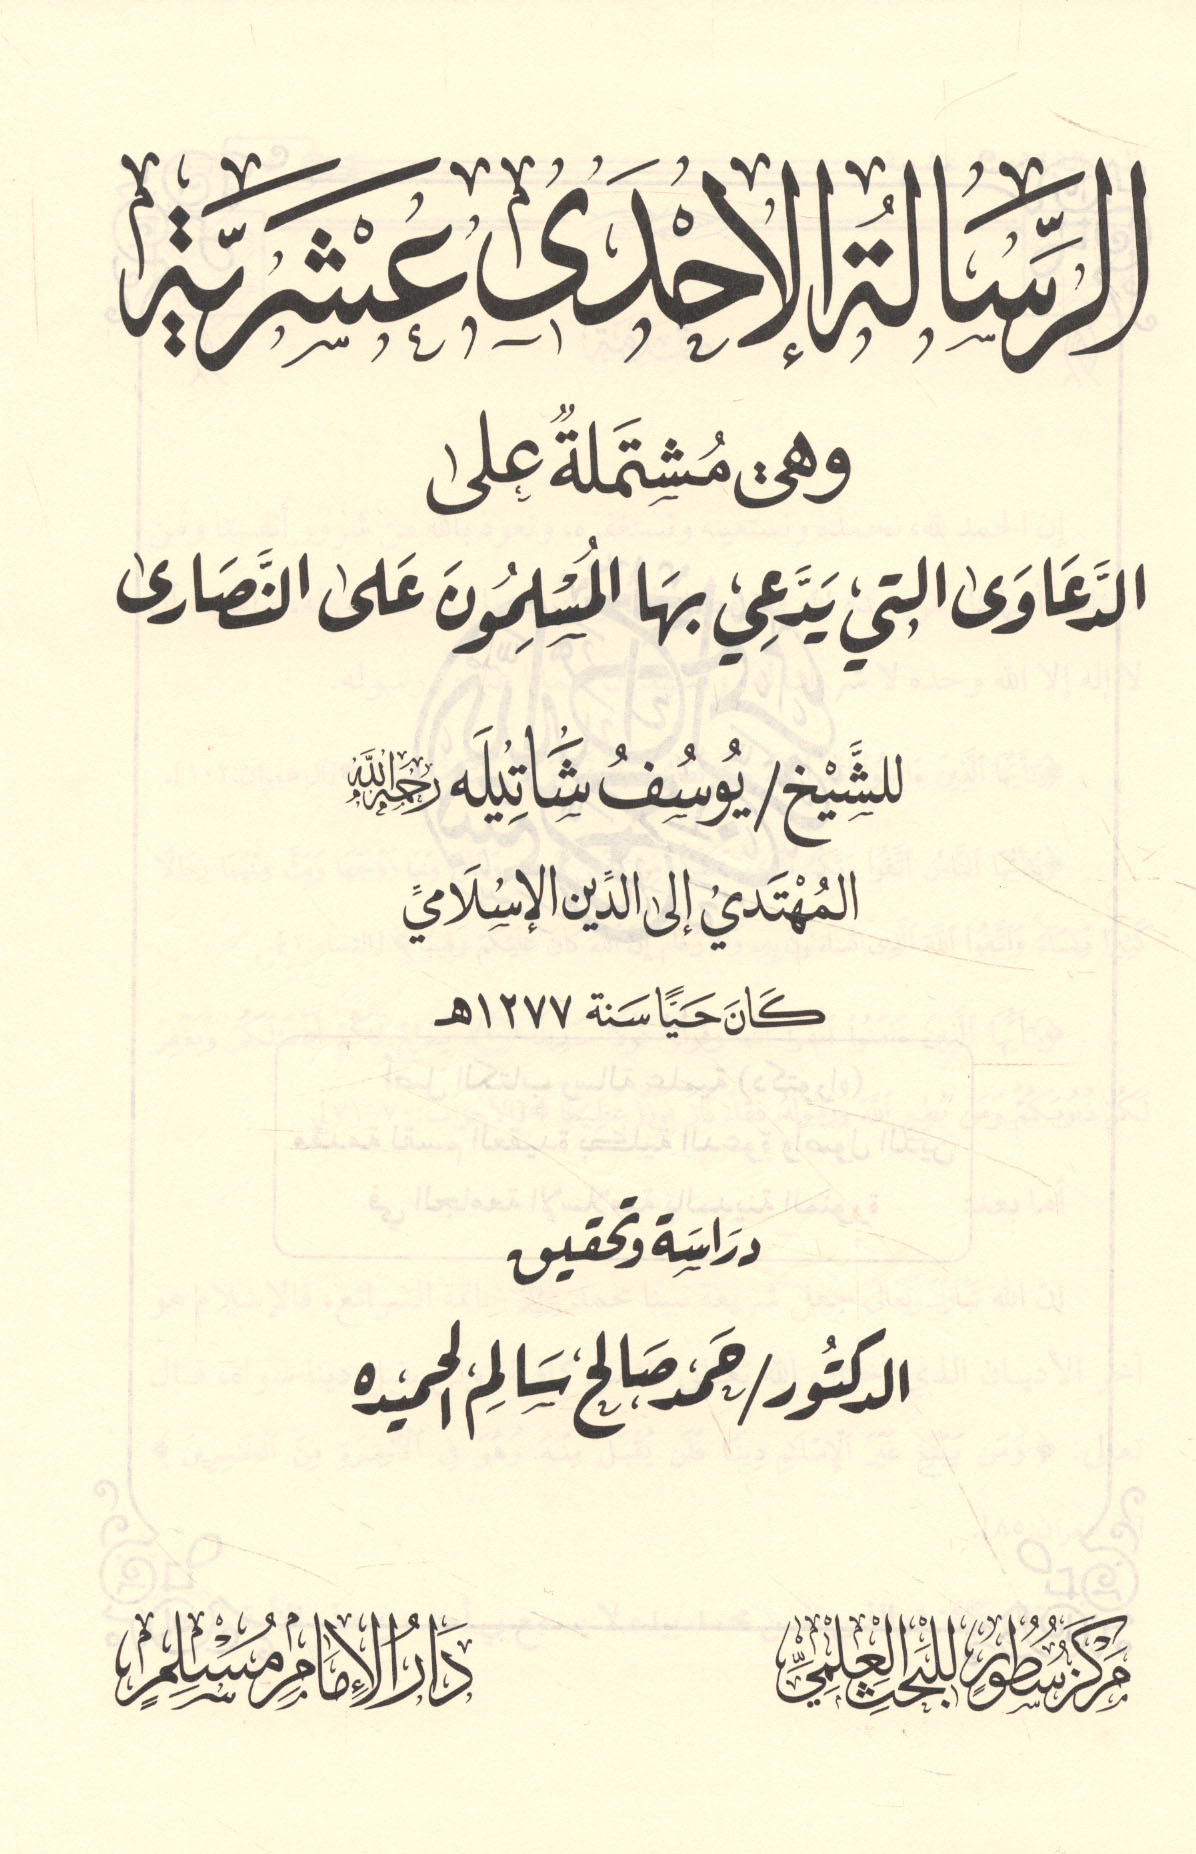 الرِّسَالَةُ الإِحْدَى عَشَرِيَّة
وهي مُشتَملةٌ على
الدَّعَاوَى التي يَدَّعِي بهَا المُسْلِمُونَ عَلى النَّصَارى
للشَّيْخ / يُوسُفُ شَاتِيْلَه رَحِمَهُ اللَّه
المُهْتَدِيْ إلى الدِّين الإسْلَاميِّ
كَانَ حَيًّا سَنة ١٢٧٧هـ
دِرَاسَة وتحقيق
الدكتُور / حَمَد صَالح سَالِم الحميده
مَركَز سُطُور للبَحْث العِلْمِيِّ
دَارُ الإِمَامِ مُسْلِمٍ